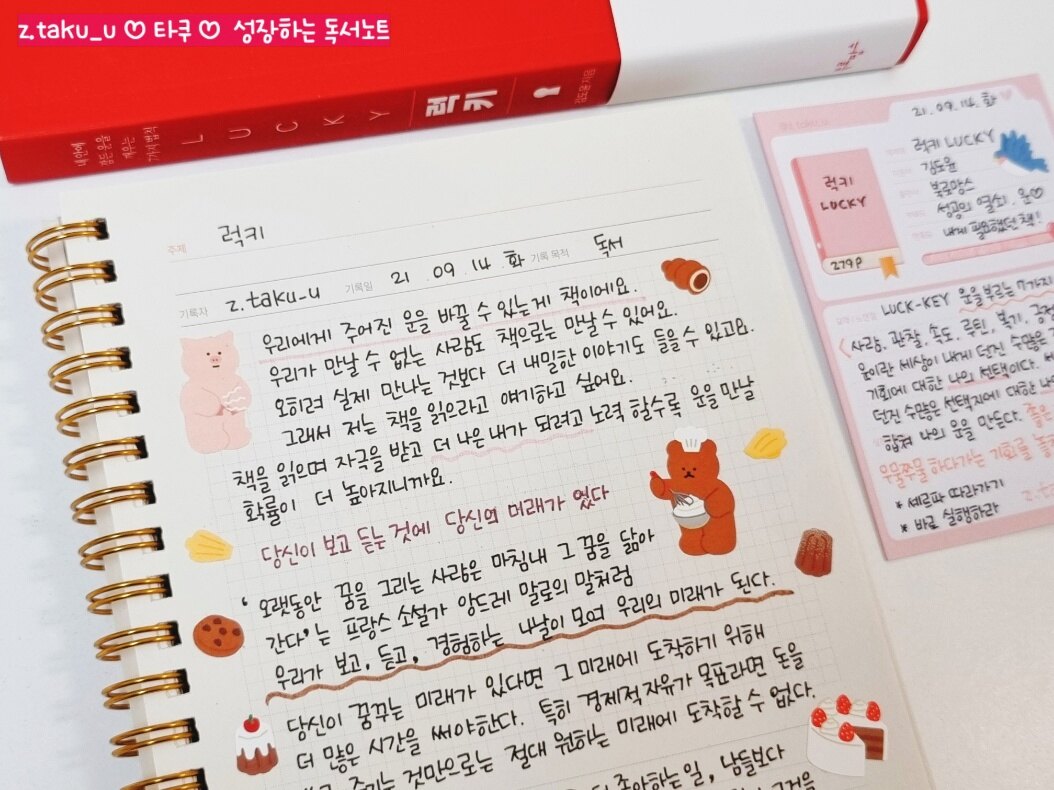 z.taku_u ♡ 타쿠 ♡ 성장하는 독서노트
내 안에
잠든 운을
깨우는
7가지 법칙
LUCKY
럭키
김도윤 지음
북로망스
주제 럭키
기록자 z.taku_u 기록일 21. 09. 14. 화 기록 목적 독서
우리에게 주어진 운을 바꿀 수 있는게 책이에요.
우리가 만날 수 없는 사람도 책으로는 만날 수 있어요.
오히려 실제 만나는 것보다 더 내밀한 이야기도 들을 수 있고요.
그래서 저는 책을 읽으라고 얘기하고 싶어요.
책을 읽으며 자극을 받고 더 나은 내가 되려고 노력 할수록 운을 만날
확률이 더 높아지니까요.
당신이 보고 듣는 것에 당신의 미래가 있다
' 오랫동안 꿈을 그리는 사람은 마침내 그 꿈을 닮아
간다'는 프랑스 소설가 앙드레 말로의 말처럼
우리가 보고, 듣고, 경험하는 나날이 모여 우리의 미래가 된다.
당신이 꿈꾸는 미래가 있다면 그 미래에 도착하기 위해
더 많은 시간을 써야한다. 특히 경제적 자유가 목표라면 돈을
는 것만으로는 절대 원하는 미래에 도착할 수 없다.
좋아하는 일, 남들보다
그것을
21. 09. 14. 화
럭키 LUCKY
김도윤
북로망스
성공의 열쇠. 운♡
내게 필요했던 책!
럭키
LUCKY
279p
LUCK-KEY 운을 부르는 7가지
사람, 관찰, 속도, 루틴, 복기, 긍정
운이란 세상이 내게 던진 수많은
기회에 대한 나의 선택이다.
던진 수많은 선택지에 대한
합쳐 나의 운을 만든다. 좋은
우물쭈물 하다가는 기회를 놓
* 셰르파 따라가기
* 바로 실행하라